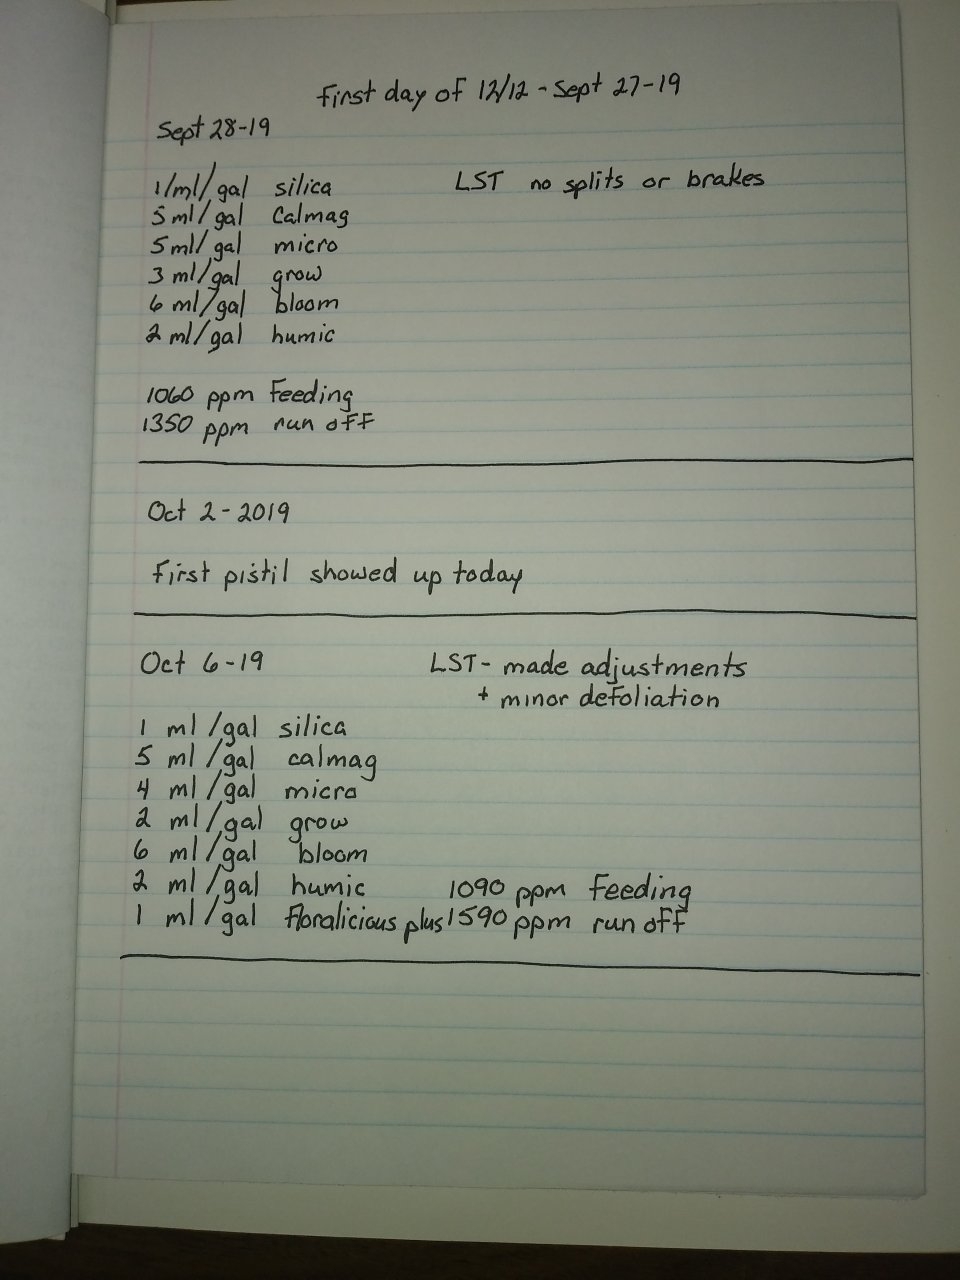 First day of 12/12 - Sept 27-19
Sept 28-19
1/ml/gal silica LST no splits or brakes
5 ml/gal Calmag
5 ml/gal micro
3 ml/gal grow
6 ml/gal bloom
2 ml/gal humic
1060 ppm Feeding
1350 ppm run off
Oct 2-2019
First pistil showed up today
Oct 6-19 LST- made adjustments
+ minor defoliation
1 ml/gal silica
5 ml/gal calmag
4 ml/gal micro
2 ml/gal grow
6 ml/gal bloom
2 ml/gal humic 1090 ppm Feeding
1 ml/gal floralicious plus 1590 ppm run off